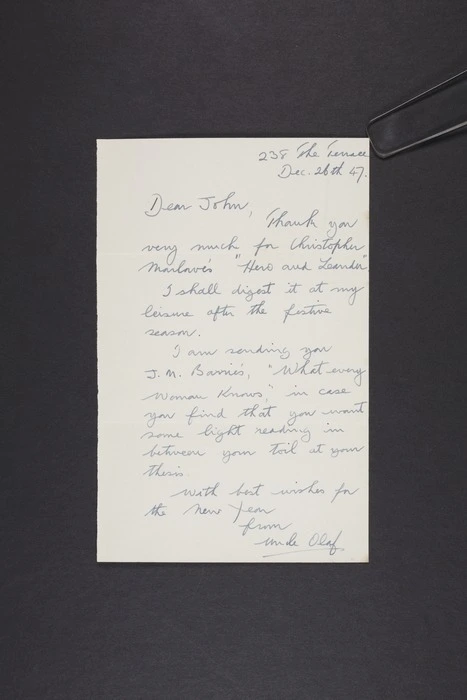 238 The Terrace
Dec. 26th 47.
Dear John,
Thank you
very much for Christopher
Marlowe's "Hero and Leander"
I shall digest it at my
leisure after the festive
season.
I am sending you
J. M. Barrie's, "What every
Woman Knows", in case
you find that you want
some light reading in
between your toil at your
thesis.
With best wishes for
the New Year
from
Uncle Olaf